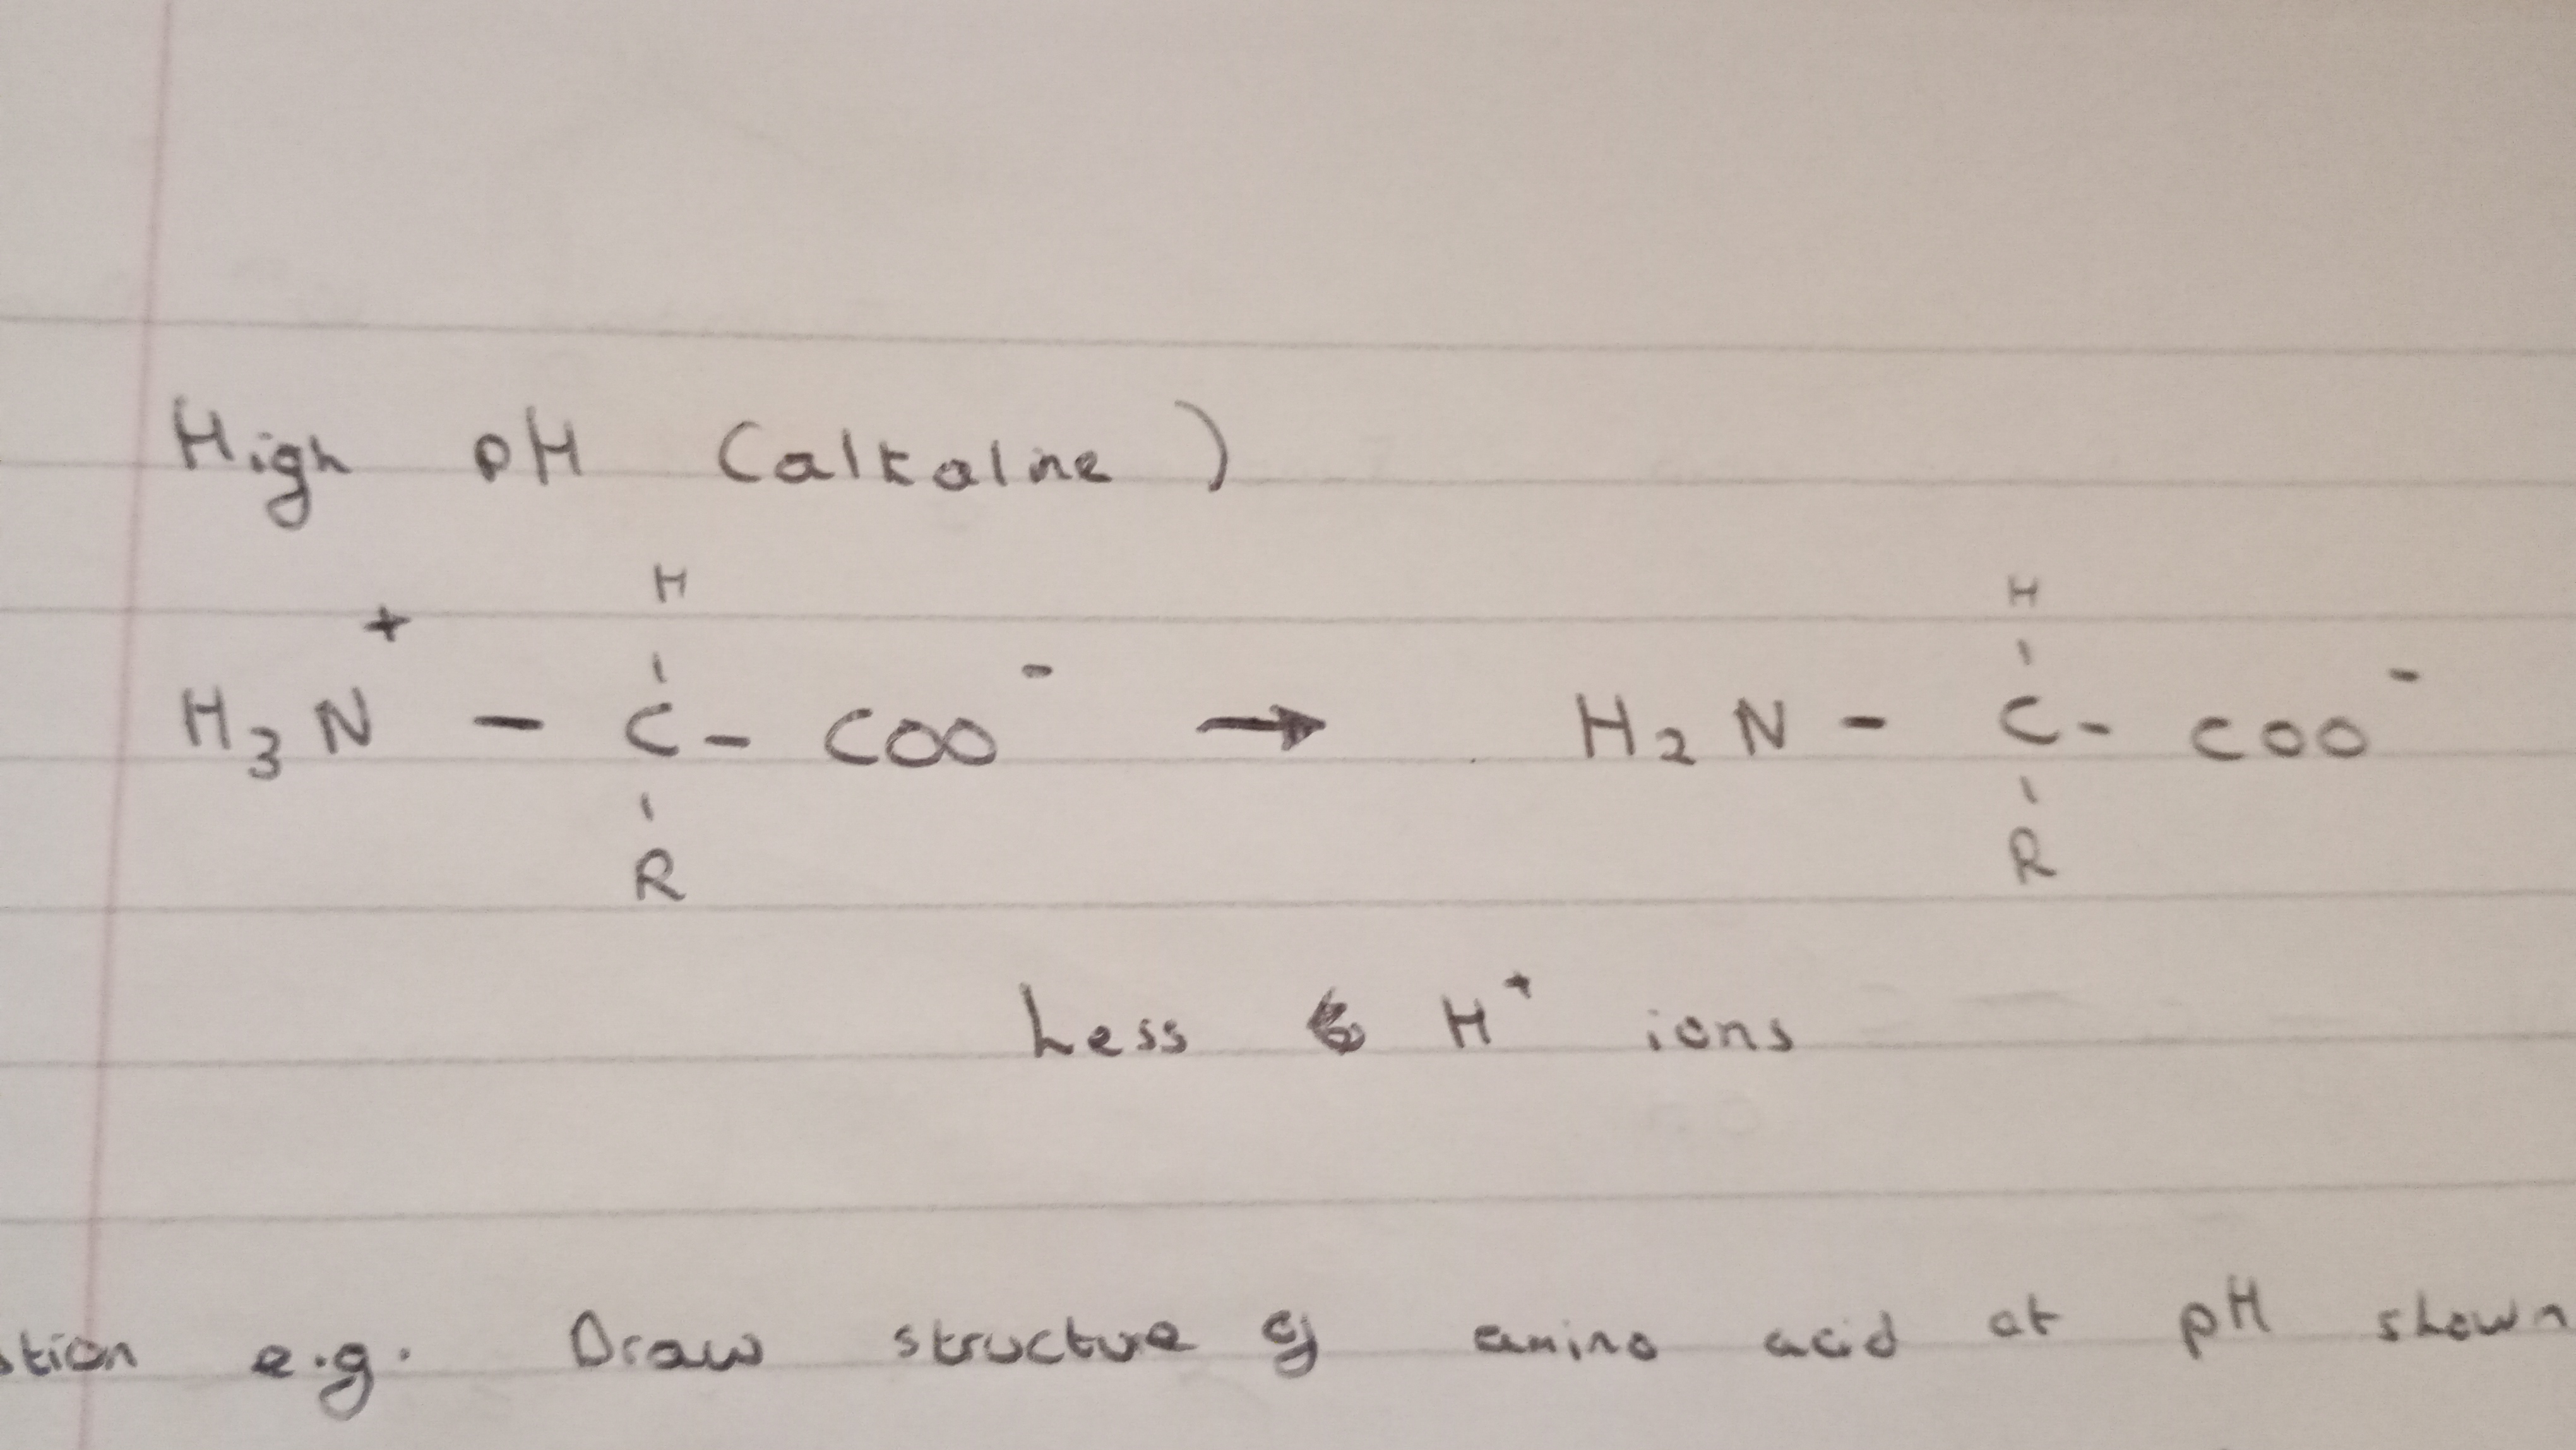 High pH (alkaline)
H H
H₃N⁺ - C - COO⁻ → H₂N - C - COO⁻
R R
Less H⁺ ions
stion e.g. Draw structure of amino acid at pH shown